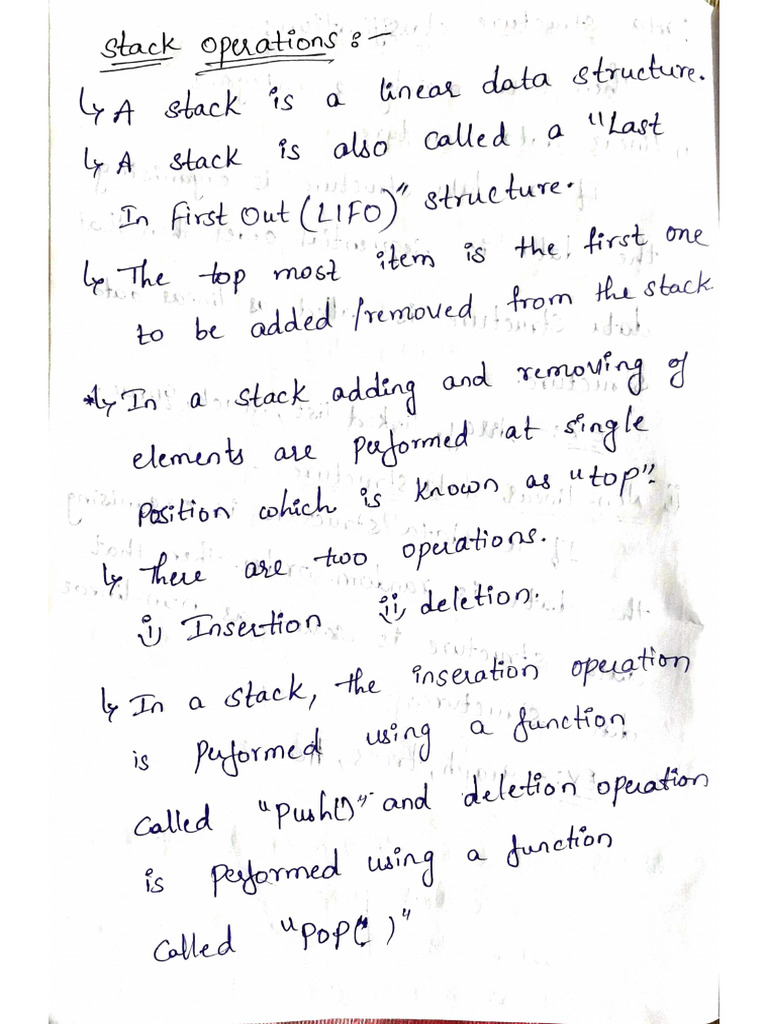 Stack operations:-
↳ A stack is a linear data structure.
↳ A stack is also called a "Last
In First Out (LIFO)" structure.
↳ The top most item is the first one
to be added/removed from the stack
*↳ In a stack adding and removing of
elements are performed at single
position which is known as "top".
↳ There are two operations.
i) Insertion ii) deletion.
↳ In a stack, the inseration operation
is performed using a function
called "push()" and deletion operation
is performed using a function
called "pop()"